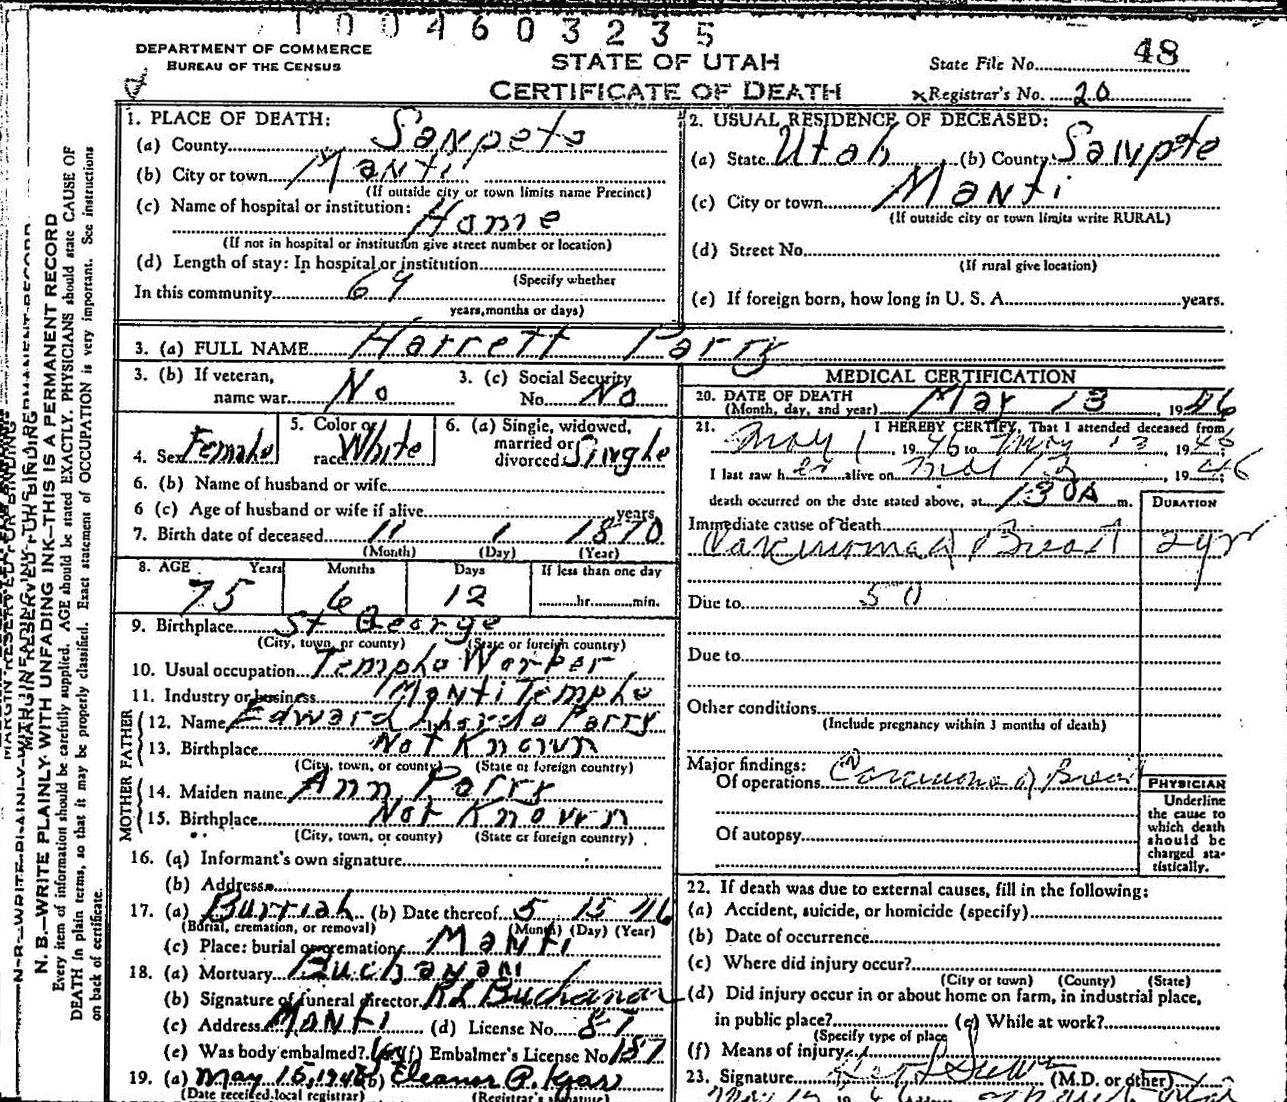 1004603235
DEPARTMENT OF COMMERCE
BUREAU OF THE CENSUS
STATE OF UTAH
CERTIFICATE OF DEATH
48
State File No.
Registrar's No. 20
1. PLACE OF DEATH:
(a) County Sanpete
(b) City or town Manti
(If outside city or town limits name Precinct)
(c) Name of hospital or institution:
Home
(If not in hospital or institution give street number or location)
(d) Length of stay: In hospital or institution
(Specify whether
In this community 69
years, months or days)
2. USUAL RESIDENCE OF DECEASED:
(a) State Utah (b) County Sanpte
(c) City or town Manti
(If outside city or town limits write RURAL)
(d) Street No.
(If rural give location)
(e) If foreign born, how long in U. S. A. years.
3. (a) FULL NAME Harrett Parry
3. (b) If veteran, name war No
3. (c) Social Security No. No
4. Sex Female
5. Color or race White
6. (a) Single, widowed, married or divorced Single
6. (b) Name of husband or wife
6 (c) Age of husband or wife if alive years
7. Birth date of deceased 11 1 1870
(Month) (Day) (Year)
8. AGE Years Months Days If less than one day
75 6 12 hr. min.
9. Birthplace St George
(City, town, or county) (State or foreign country)
10. Usual occupation Temple Worker
11. Industry or business Manti Temple
FATHER
12. Name Edward Parry
13. Birthplace Not Known
(City, town, or county) (State or foreign country)
MOTHER
14. Maiden name Ann Parry
15. Birthplace Not Known
(City, town, or county) (State or foreign country)
16. (a) Informant's own signature
(b) Address
17. (a) Burriah (b) Date thereof 5 15 46
(Burial, cremation, or removal) (Month) (Day) (Year)
(c) Place: burial or cremation Manti
18. (a) Mortuary Buchanan
(b) Signature of funeral director RL Buchanan
(c) Address Manti (d) License No. 87
(e) Was body embalmed? (f) Embalmer's License No 157
19. (a) May 15, 1946 (b) Eleanor P. Kjar
(Date received local registrar) (Registrar's signature)
MEDICAL CERTIFICATION
20. DATE OF DEATH
(Month, day, and year) May 13 1946
21. I HEREBY CERTIFY, That I attended deceased from
May 1, 1946 to May 13, 1946
I last saw her alive on May 13, 1946;
death occurred on the date stated above, at 130A m.
DURATION
Immediate cause of death
Carcinoma of Breast 2 yr
Due to 50
Due to
Other conditions
(Include pregnancy within 3 months of death)
Major findings:
Of operations Carcinoma of Breast
Of autopsy
PHYSICIAN
Underline
the cause to
which death
should be
charged sta-
tistically.
22. If death was due to external causes, fill in the following:
(a) Accident, suicide, or homicide (specify)
(b) Date of occurrence
(c) Where did injury occur?
(City or town) (County) (State)
(d) Did injury occur in or about home on farm, in industrial place,
in public place? (e) While at work?
(Specify type of place
(f) Means of injury
23. Signature (M.D. or other)
N. B.—WRITE PLAINLY WITH UNFADING INK—THIS IS A PERMANENT RECORD
Every item of information should be carefully supplied. AGE should be stated EXACTLY. PHYSICIANS should state CAUSE OF
DEATH in plain terms, so that it may be properly classified. Exact statement of OCCUPATION is very important. See instructions
on back of certificate.